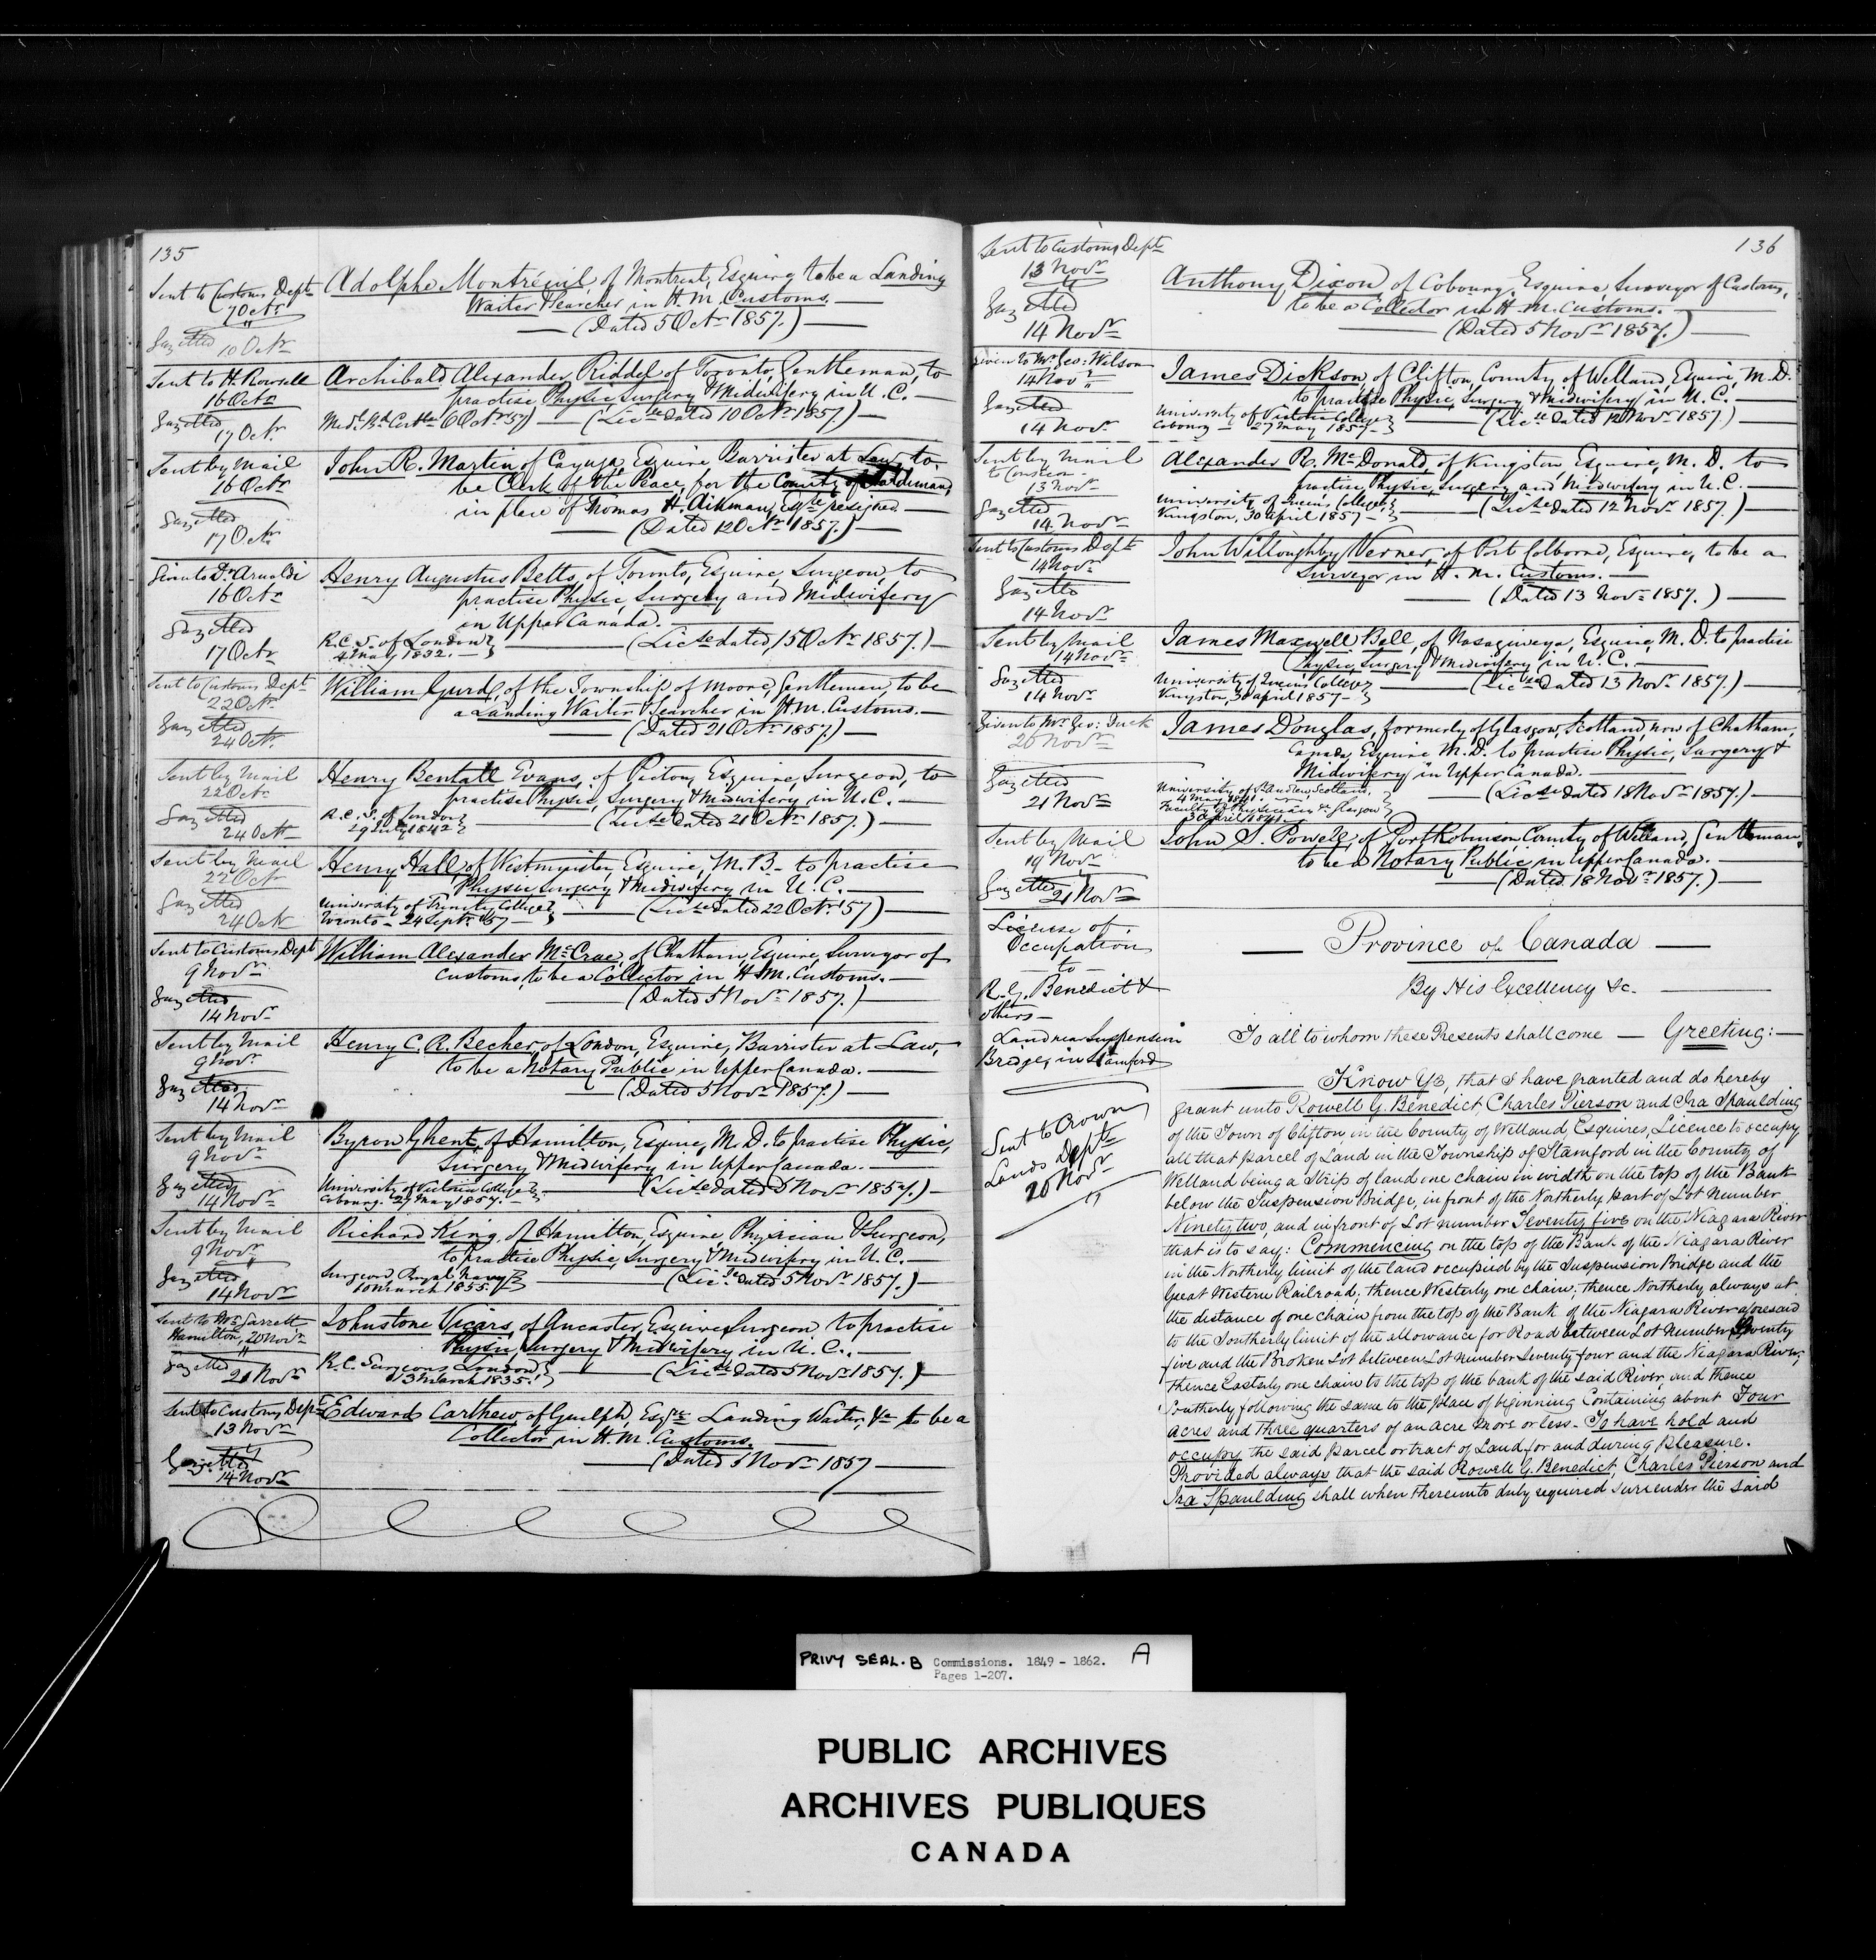 135
Sent to Customs Dept
7 Octr
Gazetted
10 Octr
Adolphe Montréuil, of Montreal, Esquire, to be a Landing
Waiter & Searcher in H. M. Customs.
(Dated 5 Octr 1857.)
Sent to H. Rowsell
16 Octr
Gazetted
17 Octr
Archibald Alexander Riddel of Toronto, Gentleman, to
practise Physic, Surgery & Midwifery in U. C.
Medl Bd Certte 6 Octr 57) — (Licse dated 10 Octr 1857.)
Sent by Mail
16 Octr
Gazetted
17 Octr
John R. Martin of Cayuga, Esquire, Barrister at Law, to
be Clerk of the Peace, for the County of Haldimand,
in place of Thomas H. Aikman, Esqre resigned.
(Dated 12 Octr 1857.)
Given to Dr Arnoldi
16 Octr
Gazetted
17 Octr
Henry Augustus Betts, of Toronto, Esquire, Surgeon, to
practise Physic, Surgery and Midwifery
in Upper Canada.
R. C. S. of London
4 May 1832.
(Licse dated, 15 Octr 1857.)
Sent to Customs Dept
22 Octr
Gazetted
24 Octr
William Gurd, of the Township of Moore, Gentleman, to be
a Landing Waiter & Searcher in H. M. Customs.
(Dated 21 Octr 1857.)
Sent by Mail
22 Octr
Gazetted
24 Octr
Henry Bentall Evans, of Picton, Esquire, Surgeon, to
practise Physic, Surgery & Midwifery in U. C.
R. C. S. of London
29 July 1842
(Licse dated 21 Octr 1857.)
Sent by Mail
22 Octr
Gazetted
24 Octr
Henry Hall, of Westminster, Esquire, M. B. to practise
Physic Surgery & Midwifery in U. C.
University of Trinity College
Toronto – 24 Septr 57
(Licse dated 22 Octr 57)
Sent to Customs Dept
9 Novr
Gazetted
14 Novr
William Alexander McCrae, of Chatham, Esquire, Surveyor of
Customs, to be a Collector in H. M. Customs.
(Dated 5 Novr 1857.)
Sent by Mail
9 Novr
Gazetted
14 Novr
Henry C. R. Becher, of London, Esquire, Barrister at Law,
to be a Notary Public in Upper Canada.
(Dated 5 Novr 1857.)
Sent by Mail
9 Novr
Gazetted
14 Novr
Byron Ghent, of Hamilton, Esquire, M. D. to practise Physic,
Surgery & Midwifery in Upper Canada.
University of Victoria College
Cobourg. 27 May 1857.
(Licse dated 5 Novr 1857.)
Sent by Mail
9 Novr
Gazetted
14 Novr
Richard King, of Hamilton, Esquire, Physician & Surgeon,
to practise Physic, Surgery & Midwifery in U. C.
Surgeon, Royal Navy
10 March 1855.
(Licse dated 5 Novr 1857.)
Sent to Mr Jarrett
Hamilton, 20 Novr
Gazetted
21 Novr
Johnstone Vicars, of Ancaster, Esquire, Surgeon to practise
Physic, Surgery & Midwifery in U. C.
R. C. Surgeons London
13 March 1835.
(Licse dated 5 Novr 1857.)
Sent to Customs Dept
13 Novr
Gazetted
14 Novr
Edward Carthew, of Guelph, Esqre Landing Waiter, &c to be a
Collector in H. M. Customs.
(Dated 5 Novr 1857
136
Sent to Customs Dept
13 Novr
Gazetted
14 Novr
Anthony Dixon of Cobourg, Esquire, Surveyor of Customs,
to be a Collector in H. M. Customs.
(Dated 5 Novr 1857.)
Given to Mr Geo: Wilson
14 Novr
Gazetted
14 Novr
James Dickson, of Clifton, County of Welland, Esquire, M. D.
to practise Physic, Surgery & Midwifery in U. C.
University of Victoria College
Cobourg – 27 May 1857
(Licse dated 12 Novr 1857.)
Sent by Mail
13 Novr
Gazetted
14 Novr
Alexander R. McDonald, of Kingston, Esquire, M. D. to
practise Physic, Surgery and Midwifery in U. C.
University of Queens College,
Kingston, 30 April 1857
(Licse dated 12 Novr 1857.)
Sent to Customs Dept
14 Novr
Gazetted
14 Novr
John Willoughby Verner, of Port Colborne, Esquire, to be a
Surveyor in H. M. Customs.
(Dated 13 Novr 1857.)
Sent by Mail
14 Novr
Gazetted
14 Novr
James Maxwell Bell, of Nassagiweya, Esquire, M. D. to practise
Physic, Surgery & Midwifery in U. C.
University of Queens College
Kingston, 30 April 1857
(Licse dated 13 Novr 1857.)
Given to Mr Geo: Duck
20 Novr
Gazetted
21 Novr
James Douglas, formerly of Glasgow, Scotland, now of Chatham,
Canada, Esquire M. D. to practise Physic, Surgery &
Midwifery in Upper Canada.
University of St Andrew Scotland,
4 May 1841.
Faculty of Physicians &c Glasgow
3 April 1841
(Licse dated 18 Novr 1857.)
Sent by Mail
19 Novr
Gazetted
21 Novr
John S. Powell, of Port Robinson, County of Welland, Gentleman,
to be a Notary Public in Upper Canada.
(Dated 18 Novr 1857.)
License of
Occupation
to
R. G. Benedict &
others
Land near Suspension
Bridge, in Stamford
Sent to Crown
Lands Dept
20 Novr
Province of Canada
By His Excellency &c.
To all to whom these Presents shall come — Greeting:
Know Ye, that I have granted and do hereby
grant unto Rowell G. Benedict, Charles Pierson and Ira Spaulding
of the Town of Clifton in the County of Welland Esquires, Licence to occupy
all that parcel of Land in the Township of Stamford in the County of
Welland being a Strip of land one chain in width on the top of the Bank
below the Suspension Bridge, in front of the Northerly part of Lot number
Ninety two, and in front of Lot number Seventy five on the Niagara River
that is to say: Commencing on the top of the Bank of the Niagara River
in the Northerly limit of the land occupied by the Suspension Bridge and the
Great Western Railroad, thence Westerly one chain; thence Northerly always at
the distance of one chain from the top of the Bank of the Niagara River aforesaid
to the Southerly limit of the allowance for Road between Lot Number Seventy
five and the Broken Lot between Lot number Seventy four and the Niagara River;
thence Easterly one chain to the top of the bank of the said River, and thence
Southerly following the same to the place of beginning Containing about Four
acres and three quarters of an acre more or less. To have hold and
occupy the said parcel or tract of Land for and during pleasure.
Provided always that the said Rowell G. Benedict, Charles Pierson and
Ira Spaulding shall when thereunto duly required surrender the said
PRIVY SEAL. B Commissions. 1849 - 1862. A
Pages 1-207.
PUBLIC ARCHIVES
ARCHIVES PUBLIQUES
CANADA